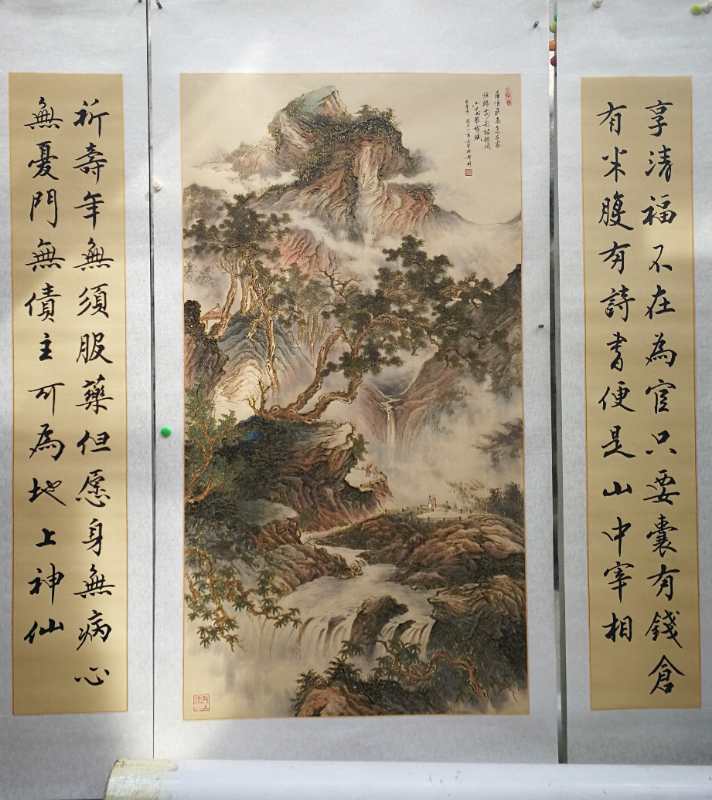 享清福不在為官只要囊有錢倉
有米腹有詩書便是山中宰相
祈壽年無須服藥但愿身無病心
無憂門無債主可為地上神仙